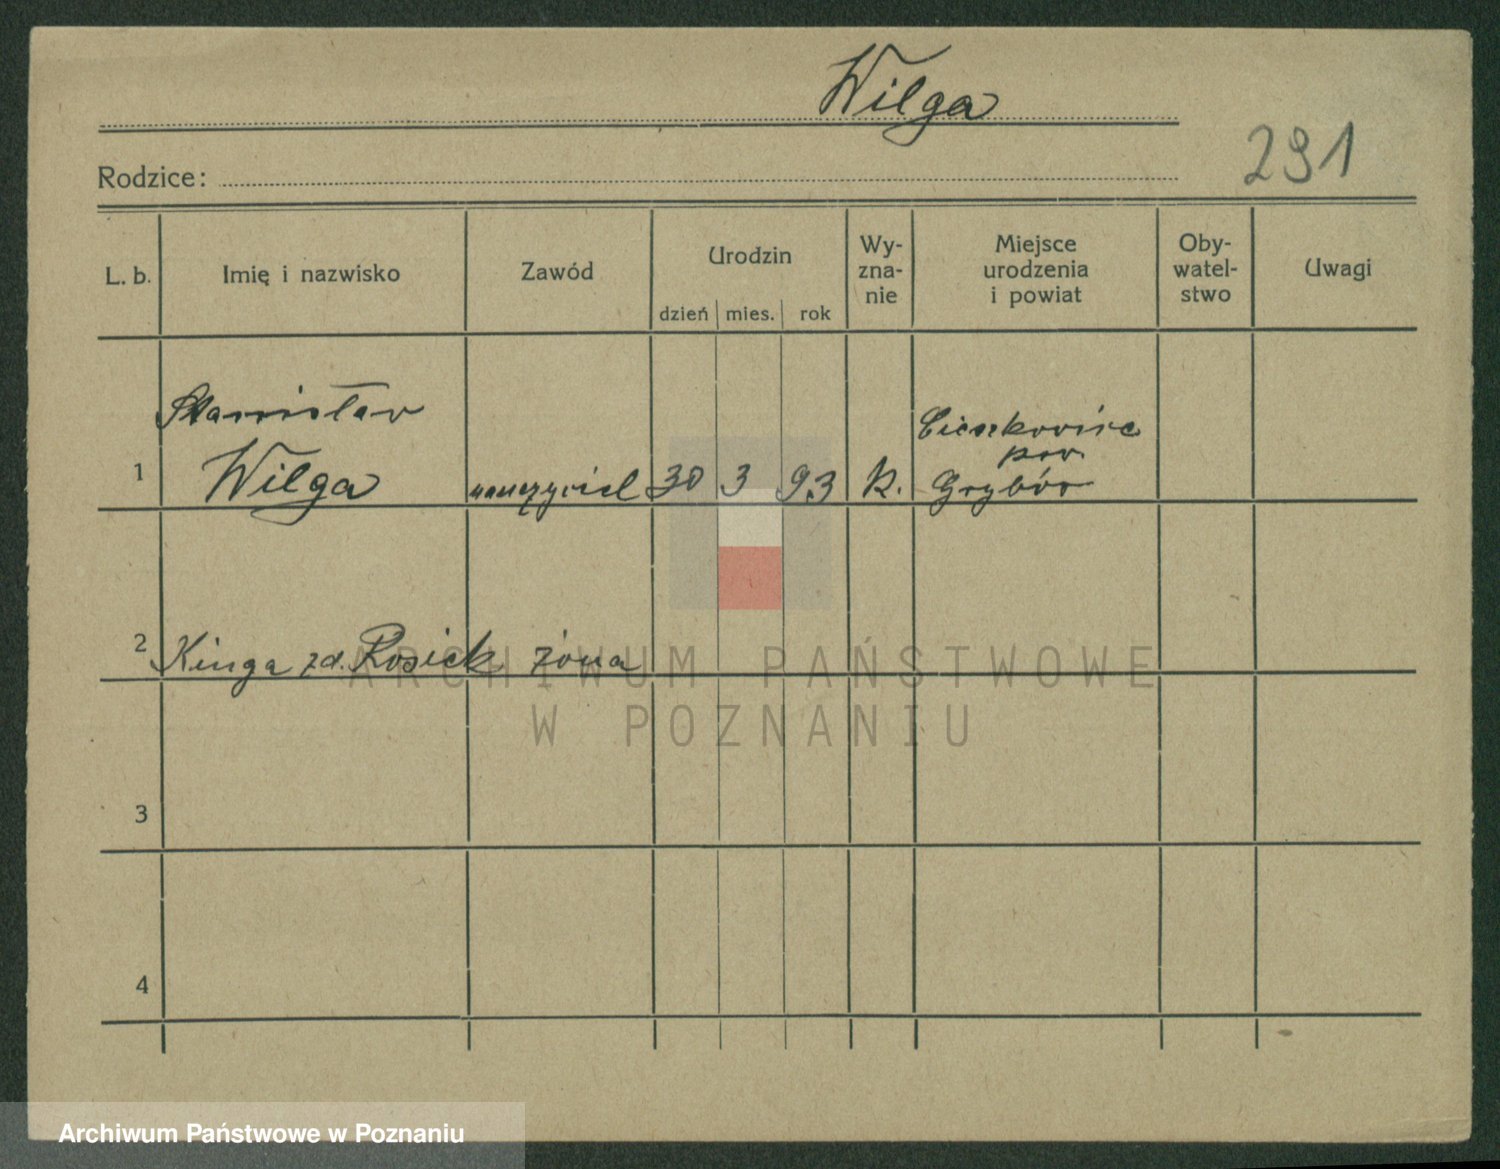 Wilga
291
Rodzice:
L. b.
Imię i nazwisko
Zawód
Urodzin
dzień mies. rok
Wy-
zna-
nie
Miejsce
urodzenia
i powiat
Oby-
watel-
stwo
Uwagi
1
Stanisław
Wilga
nauczyciel
30 3 93
k.
Cieszkowice
pow.
Grybów
2 Kinga zd. Rosiek żona
3
4
ARCHIWUM PAŃSTWOWE
W POZNANIU
Archiwum Państwowe w Poznaniu